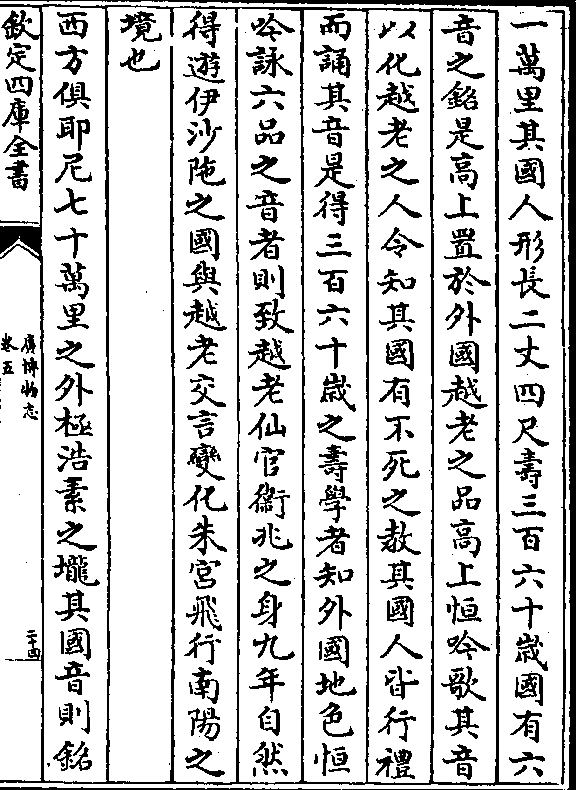 一萬里其國人形長二丈四尺壽三百六十歲國有六
音之銘是高上置於外國越老之品高上恒吟歌其音
以化越老之人令知其國有不死之教其國人皆行禮
而誦其音是得三百六十歲之壽學者知外國地色恒
吟詠六品之音者則致越老仙官衞兆之身九年自然
得遊伊沙陁之國與越老交言變化朱宮飛行南陽之
境也
西方俱耶尼七十萬里之外極浩素之壠其國音則銘
欽定四庫全書
廣博物志
卷五
二十四